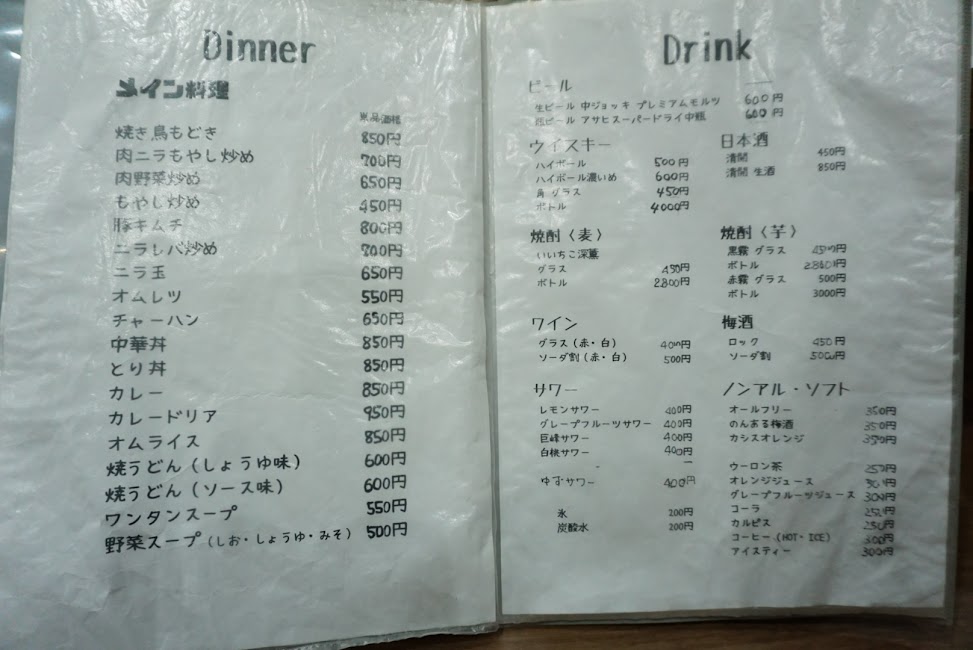 Dinner
メイン料理
単品価格
焼き鳥もどき 850円
肉ニラもやし炒め 700円
肉野菜炒め 650円
もやし炒め 450円
豚キムチ 800円
ニラレバ炒め 700円
ニラ玉 650円
オムレツ 550円
チャーハン 650円
中華丼 850円
とり丼 850円
カレー 850円
カレードリア 950円
オムライス 850円
焼うどん(しょうゆ味) 600円
焼うどん(ソース味) 600円
ワンタンスープ 550円
野菜スープ(しお・しょうゆ・みそ) 500円
Drink
ビール
生ビール 中ジョッキ プレミアムモルツ 600円
瓶ビール アサヒスーパードライ中瓶 600円
ウイスキー
ハイボール 500円
ハイボール濃いめ 600円
角 グラス 450円
ボトル 4000円
日本酒
清開 450円
清開 生酒 850円
焼酎〈麦〉
いいちこ深薫
グラス 450円
ボトル 2800円
焼酎〈芋〉
黒霧 グラス 450円
ボトル 2800円
赤霧 グラス 500円
ボトル 3000円
ワイン
グラス(赤・白) 400円
ソーダ割(赤・白) 500円
梅酒
ロック 450円
ソーダ割 500円
サワー
レモンサワー 400円
グレープフルーツサワー 400円
巨峰サワー 400円
白桃サワー 400円
ゆずサワー 400円
氷 200円
炭酸水 200円
ノンアル・ソフト
オールフリー 350円
のんある梅酒 350円
カシスオレンジ 350円
ウーロン茶 250円
オレンジジュース 300円
グレープフルーツジュース 300円
コーラ 250円
カルピス 250円
コーヒー(HOT・ICE) 300円
アイスティー 300円